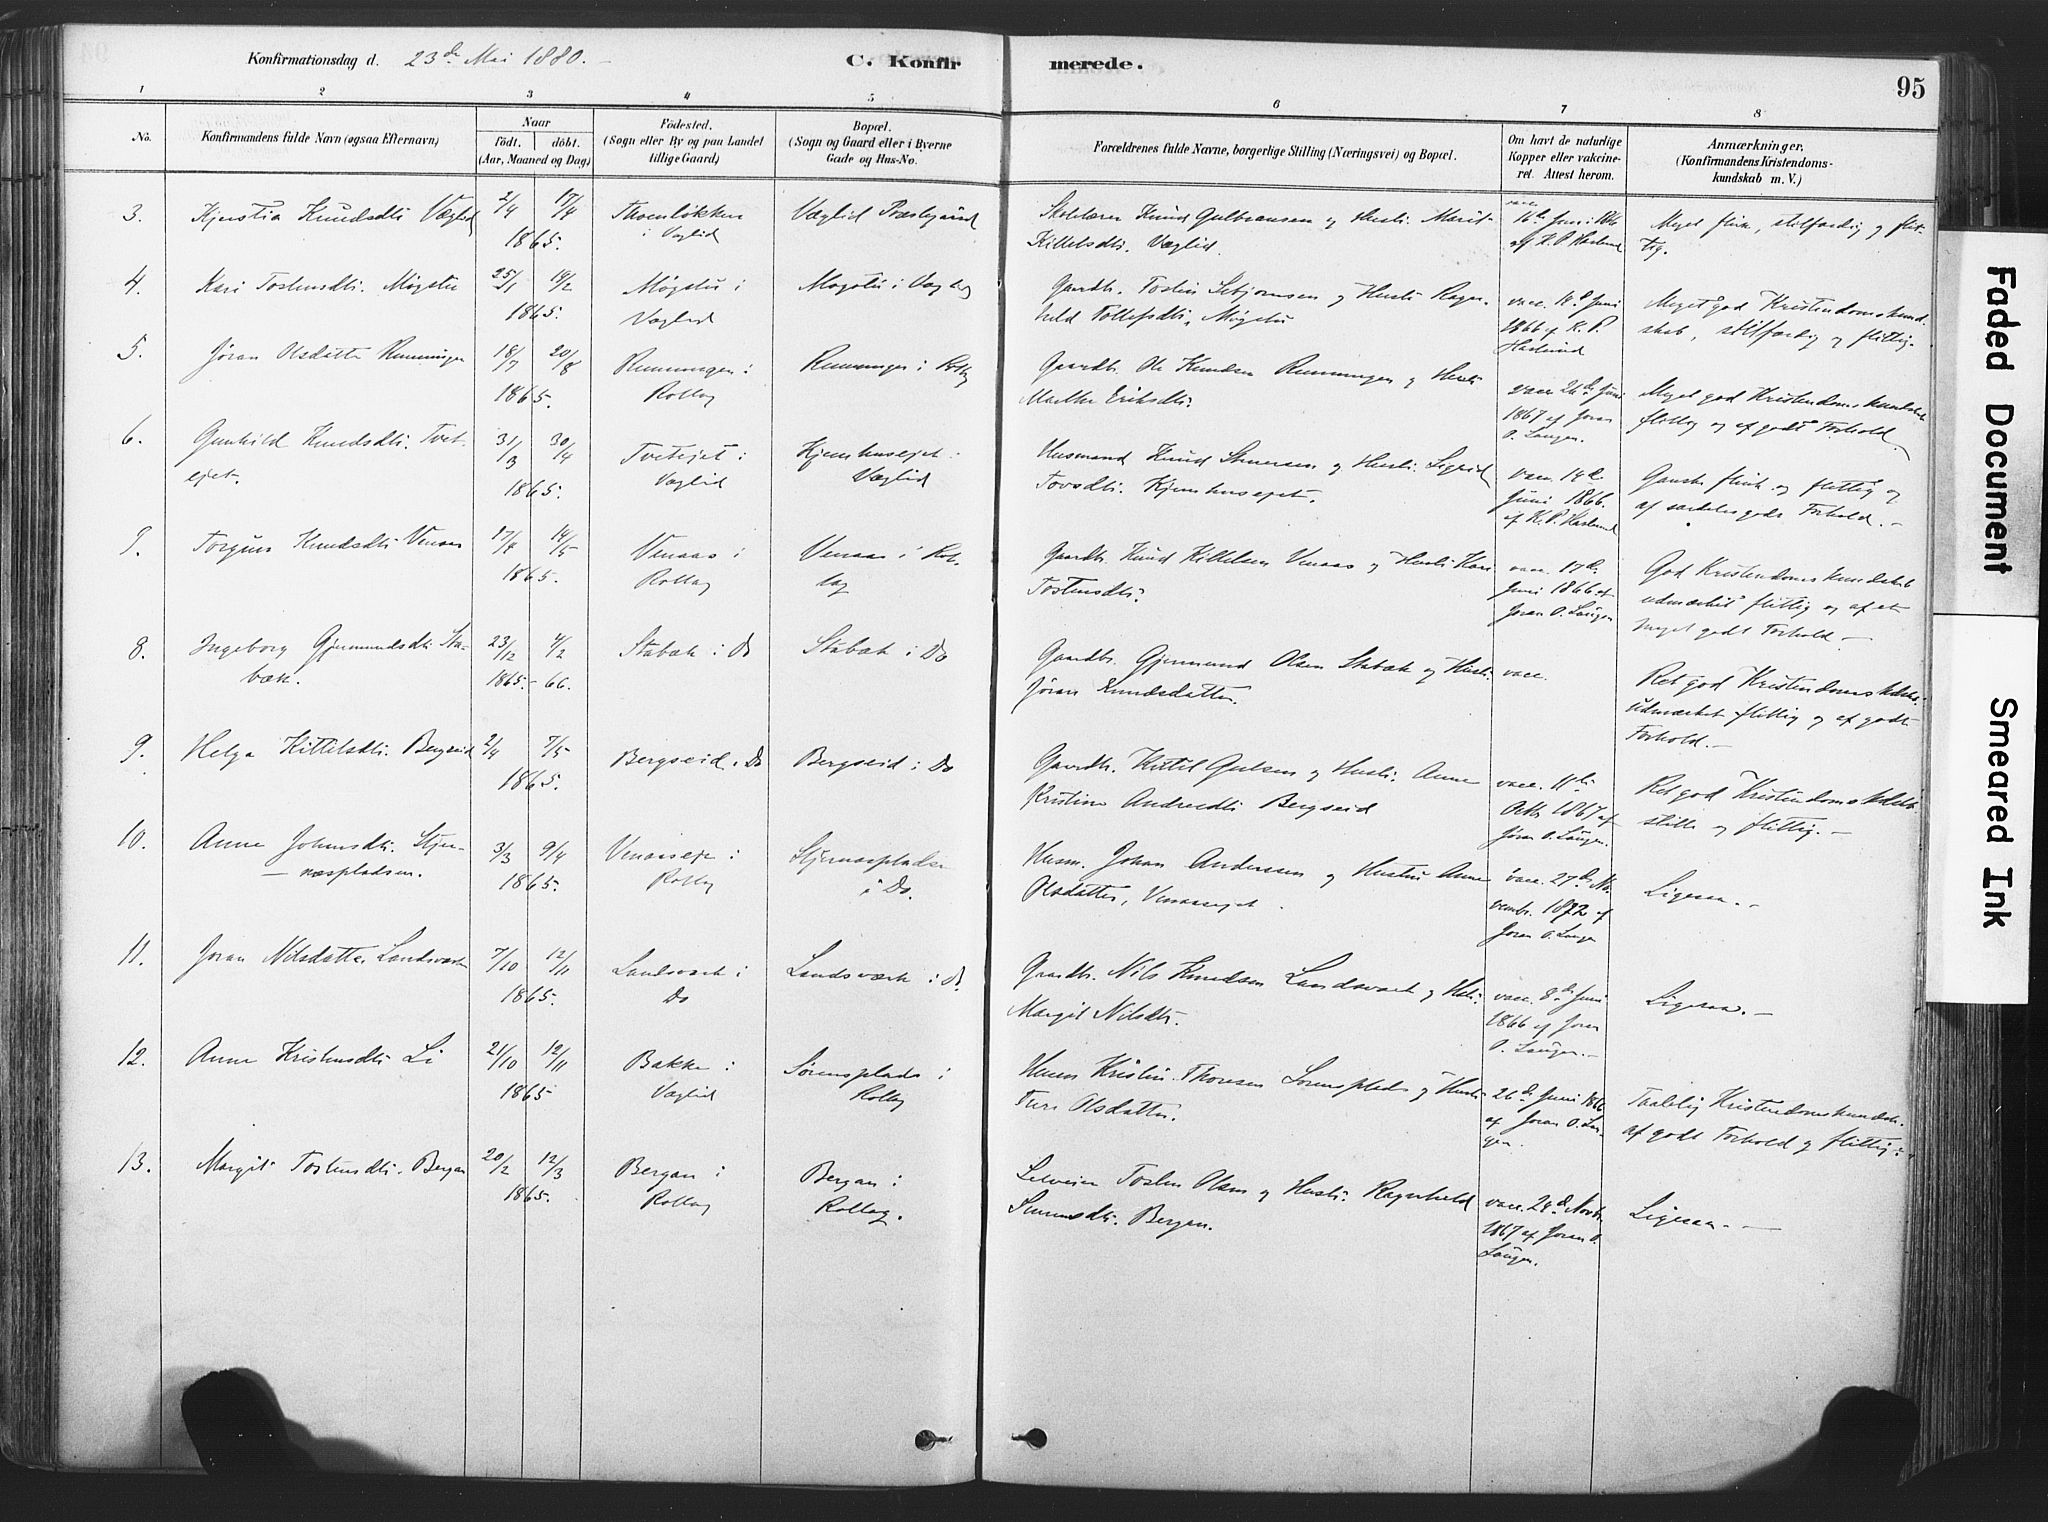 Konfirmationsdag d. 23de Mai 1880. —
C. Konfirmerede.
95
1 2 3 4 5 6 7 8
No.
Konfirmandens fulde Navn (ogsaa Efternavn)
Naar
födt. döbt.
(Aar, Maaned og Dag)
Födested.
(Sogn eller By og paa Landet
tillige Gaard)
Bopæl.
(Sogn og Gaard eller i Byerne
Gade og Hus-No.
Forældrenes fulde Navne, borgerlige Stilling (Næringsvei) og Bopæl.
Om havt de naturlige
Kopper eller vakcine-
ret. Attest herom.
Anmærkninger.
(Konfirmandens Kristendoms-
kundskab m. V.)
3. Kjerstia Knudsdtr. Væglid 2/4 17/4
1865.
i Væglid
Væglid Præstegaard
Skolelærer Knud Gulbransen og Hustr. Marit
Kittelsdtr. Væglid.
vacc.
16de Juni 1866
af K. P. Haslund
Meget flink, stilfærdig og flit-
tig.
4. Kari Tostensdtr. Møgstu 25/1 19/2
1865.
Møgstu i
Væglid
Møgstu i Væglid
Gaardbr. Tostin Sebjørnsen og Hustr. Ragn-
hild Tollefsdtr. Møgstu
vacc. 16de Juni
1866 af K. P.
Haslund
Meget god Kristendomskund-
skab, stilfærdig og flittig.
5. Jøran Olsdatter Rumningen 18/7 20/8
1865.
Rumningen i
Rollag
Rumningen i Rollag
Gaardbr. Ole Knudsen Rumningen og Hustr.
Marthe Eriksdtr.
vacc 26de Juni
1867 af Joran
O. Laugen.
Meget god Kristendomskundskab
flittig og af godt Forhold.
6. Gunhild Knudsdtr. Tvet-
ejet. 31/3 30/4
1865.
Tvetejet i
Væglid
Kjemhusejet i
Væglid
Husmand Knud Svensen og Hustr. Sigrid
Tovsdtr. Kjemhusejet.
vacc. 14de
Juni 1866.
af K. P. Haslund
Ganske flink og flittig og
af særdeles godt Forhold. —
Torgun Knudsdtr. Venaas 17/4 14/5
1865.
Venaas i
Rollag
Venaas i Rol-
lag
Gaardbr. Knud Kittelsen Venaas og Hustr. Kari
Tostensdtr.
vacc. 17de
Juni 1866 af
Joran O. Laugen
God Kristendomskundskab
udmærket flittig og af et
meget godt Forhold —
8. Ingeborg Gjermundsdtr. Sta-
bæk. 23/12 4/2
1865. - 66.
Stabæk i Do
Stabæk i Do
Gaardbr. Gjermund Olsen Stabæk og Hustr.
Jøran Knudsdatter.
vacc.
Ret god Kristendomskdskb.
udmærket flittig og af godt
Forhold. —
9. Helga Kittilsdtr. Bergseid 2/4 7/5
1865.
Bergseid i Do
Bergseid i Do
Gaardbr. Kittil Gulsen og Hustr. Anne
Kristine Andreadtr. Bergseid
vacc. 11te
Octbr 1867 af
Jøran O. Laugen.
Ret god Kristendomskdskb
stille og flittig. —
10. Anne Johnsdtr. Stjer-
— næspladsen. 3/3 9/4
1865.
Venaaseje i
Rollag
Stjernæspladsen
i Do.
Husm. Johan Anderssen og Hustru Anne
Olsdatter, Venaasejet.
vacc. 27de No-
vembr. 1872 af
Joran O. Laugen
Ligesaa. —
11. Joran Nilsdatter Landsværk 7/10 12/11
1865.
Landsværk i
Do
Landsværk i Do.
Gaardbr. Nils Knudsen Landsværk og Hstr.
Margit Nilsdtr.
vacc. 8de Juni
1866 af Joran
O. Laugen. —
Ligesaa. —
12. Anne Kristensdtr Li 21/10 12/11
1865
Bakke i
Væglid
Sørensplads i
Rollag
Husm Kristin Thoresen Sorensplads og Hustr.
Turi Olsdatter.
26de Juni 1866
af Joran O. Lau-
gen.
Taalelig Kristendomskundsk.
af godt Forhold og flittig. —
13. Margit Tostensdtr. Bergan 20/2 12/3
1865.
Bergan i
Rollag
Bergan i
Rollag.
Selveier Tosten Olsen og Hustr. Ragnhild
Simensdtr. Bergan.
vacc. 28de Novbr.
1867 af Joran O.
Laugen.
Ligesaa. —
Faded Document
Smeared Ink